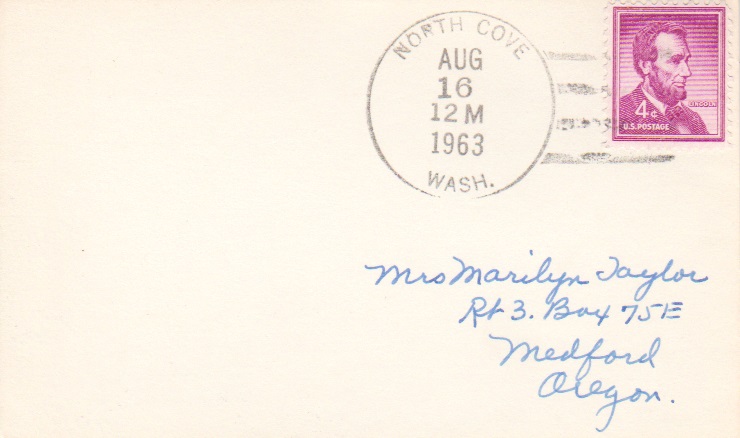 NORTH COVE
AUG
16
12 M
1963
WASH.
LINCOLN
4¢
U.S. POSTAGE
Mrs Marilyn Taylor
Rt 3. Box 75E
Medford
Oregon.